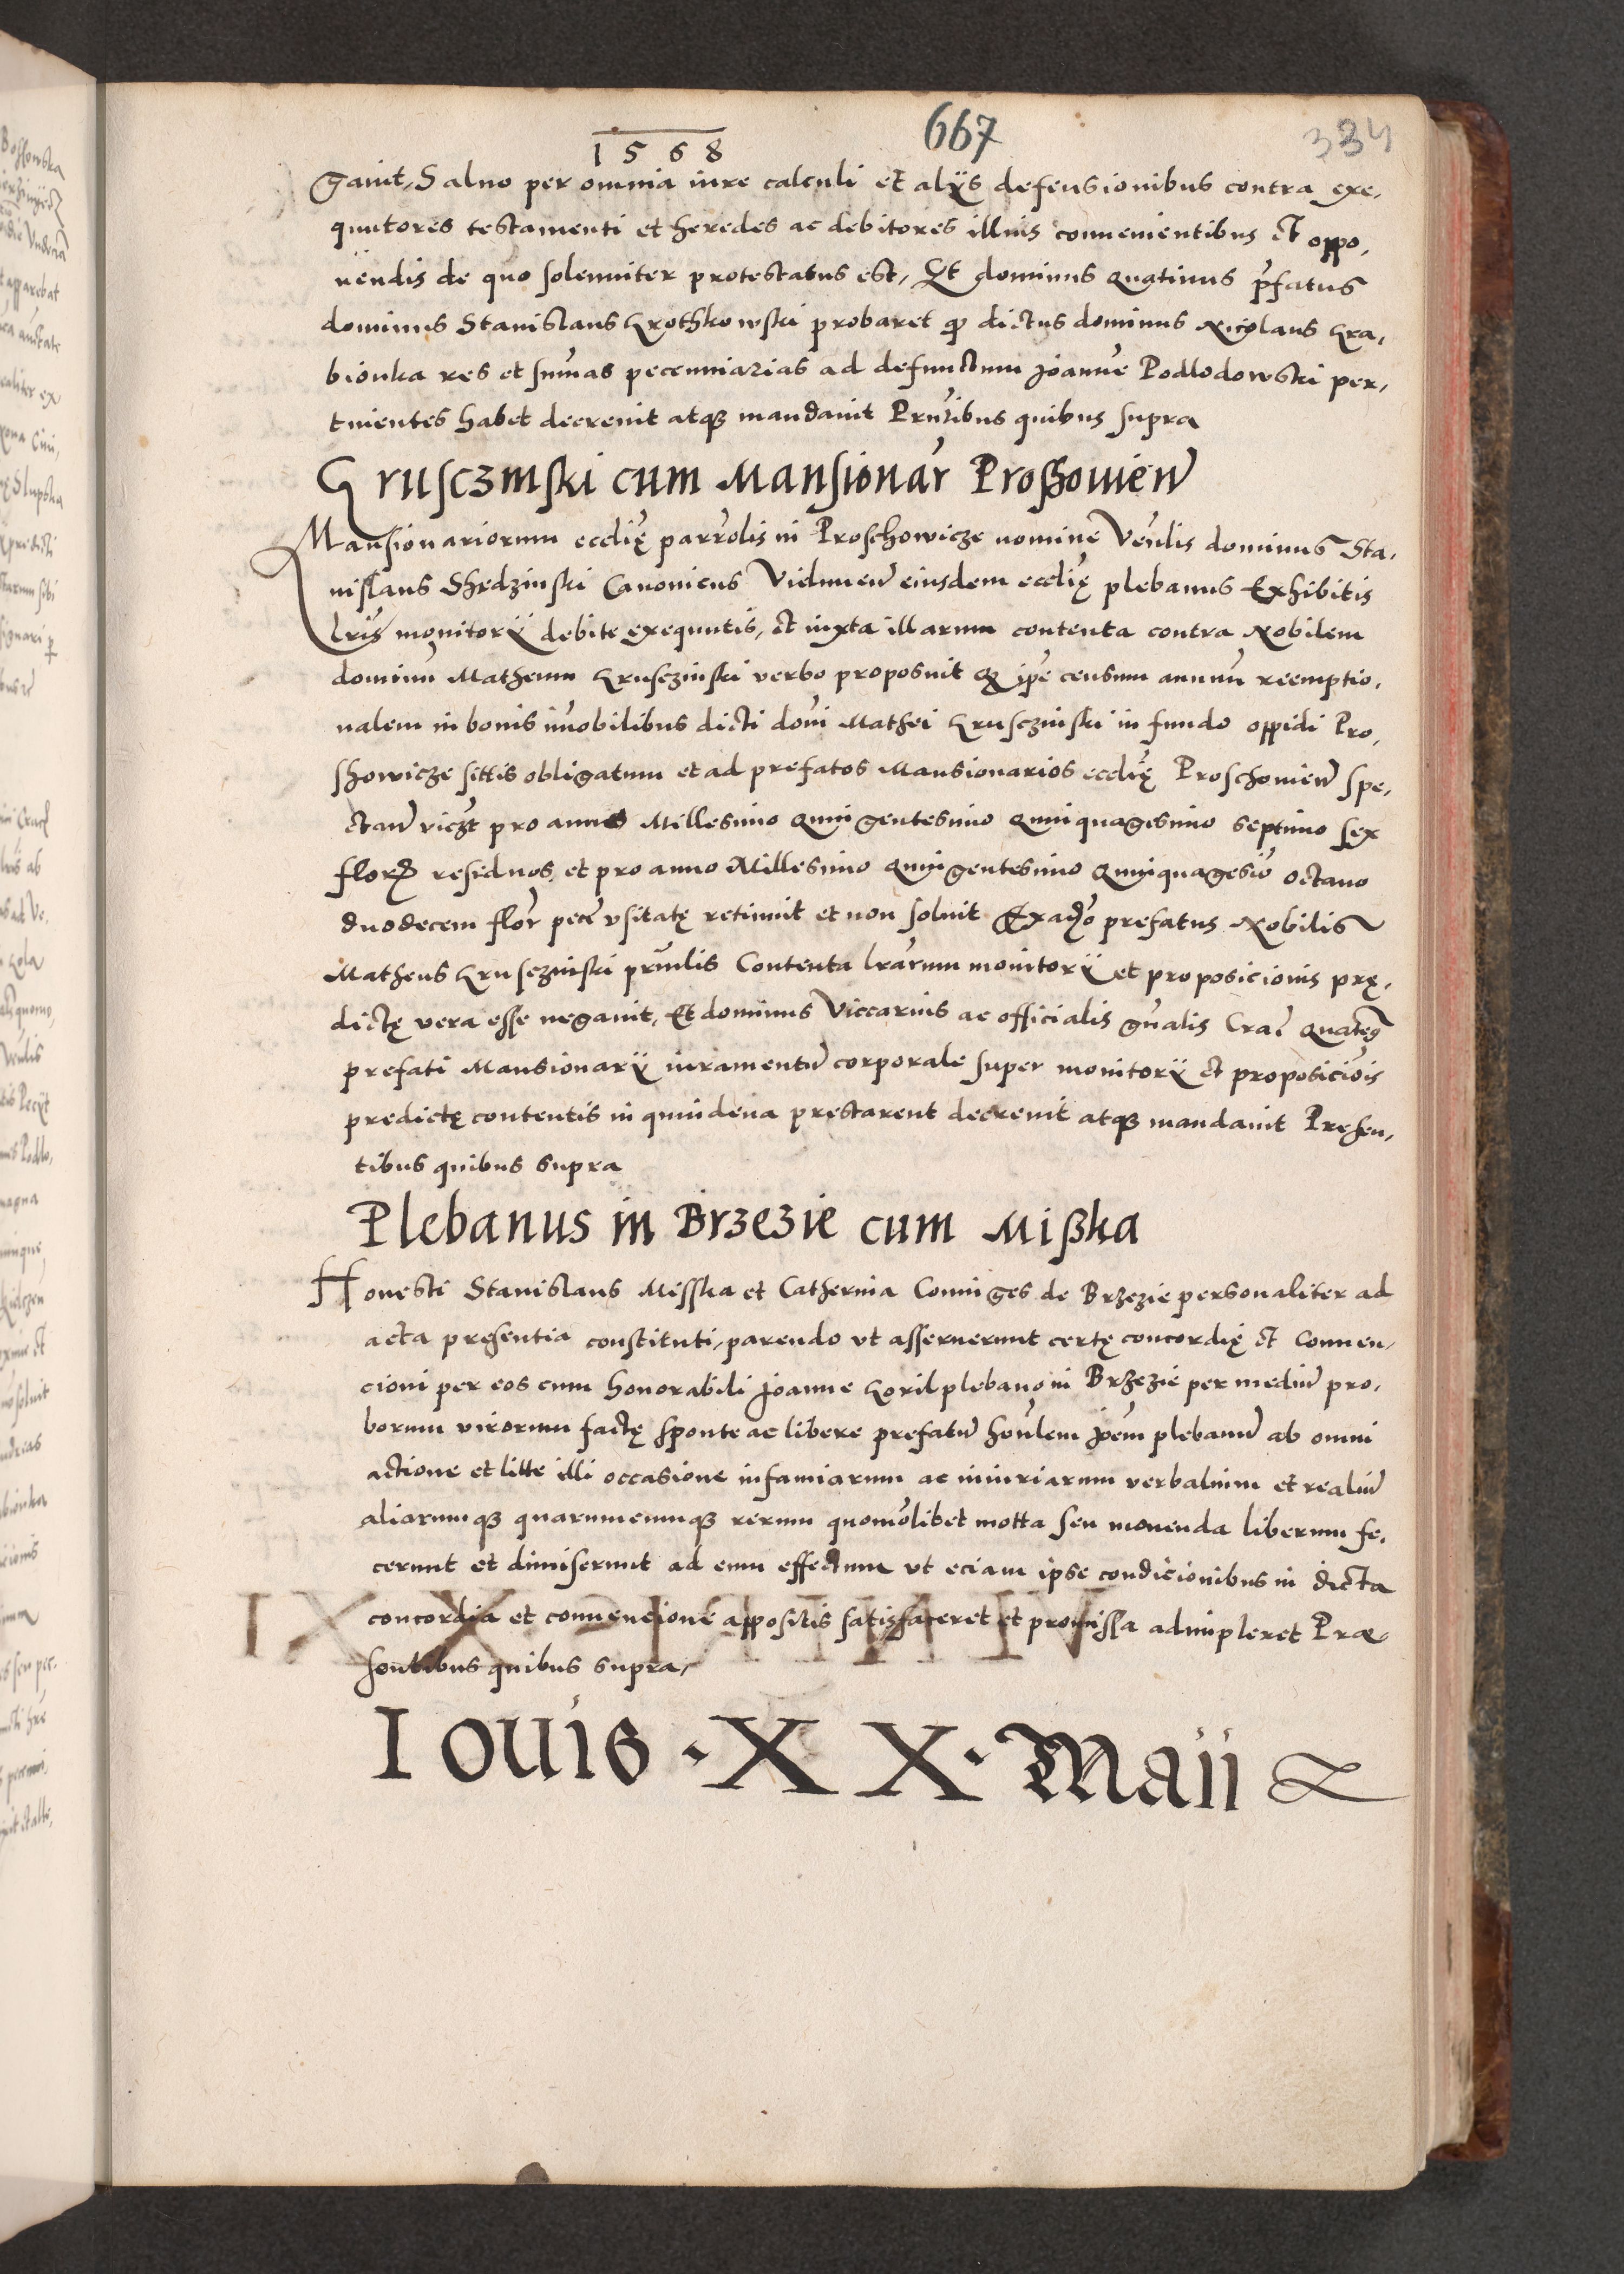 1568
667
334
gauit, Saluo per omnia iure calculi et alijs defensionibus contra exe,
quutores testamenti et heredes ac debitores illius conuenientibus et oppo,
nendis de quo solenniter protestatus est, Et dominus quatinus p̄fatus
dominus Stanislaus Krothkowski probaret dictus dominus Nicolaus Gra,
bionka res et sum̄as peccuniarias ad defunctum Joanne Podlodowski per,
tinentes habet decreuit atq3 mandauit Pr̄ntibus quibus supra
Gruscżinski cum Mansionar̄ Proßouien̄
Mansionariorum ecclīę parr̄olis in Proschowicze nomine Ven̄lis dominus Sta,
nislaus Canonicus eiusdem ecclīę plebanus Exhibitis
lr̄is monitorij debite exequutis, et iuxta illarum contenta contra Nobilem
dominū Matheum Grusczinski verbo proposuit ip̄e censum annuū reemptio,
nalem in bonis im̄obilibus dicti dom̄i Mathei Grusczinski in fundo oppidi Pro,
showicze sittis obligatum et ad prefatos Mansionarios ecclīę Proschouien̄ spe,
ctan̄ vicz̄t pro annis Millesimo quingentesimo quinquagesimo septimo sex
flor̄ residuos, et pro anno Millesimo quingentesimo quinquagesiō octauo
duodecem flor̄ pec̄ vsitatę retinuit et non soluit Exaduō prefatus Nobilis
Matheus Grusczinski Contenta lr̄arum monitorij et proposicionis prę,
dictę vera esse negauit, Et dominus Viccarius ac officialis gn̄alis Cra͞c quaten9
prefati Mansionarij iuramentū corporale super monitorij et proposiciōis
predictę contentis in quindena pręstarent decreuit atq3 mandauit Pręsen,
tibus quibus supra
Plebanus in Brzezie cum Mißka
Honesti Stanislaus Misska et Catherina Coniuges de Brzezie personaliter ad
acta presentia constituti, parendo vt asseruerunt certę concordię et Conuen,
cioni per eos cum honorabili Joanne Goril plebano in Brzezie per mediū pro,
borum virorum factę sponte ac libere prefatū hon̄lem Jōem plebanū ab omni
actione et litte illi occasione infamiarum ac iniuriarum verbalium et realiū
aliarumq3 quarumcumq3 rerum quomōlibet motta seu mouenda liberum fe,
cerunt et dimiserunt ad eum effectum vt eciam ipse condicionibus in dicta
concordia et conuencione appositis satisfaceret et promissa adimpleret Præ,
sentibus quibus supra,
Iouis · X X · Maii